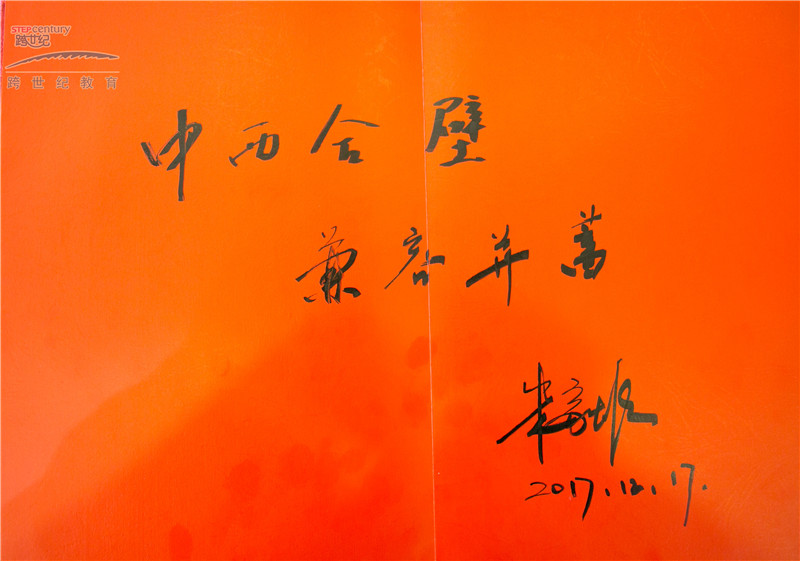 STEPcentury
跨世纪
跨世纪教育
中西合璧
兼容并蓄
2017.12.17.